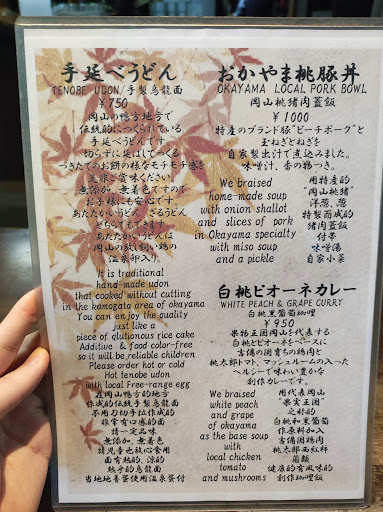 手延べうどん
TENOBE UDON/手製烏龍面
¥750
岡山の鴨方地方で
伝統的につくられている
手延べうどんです。
切らずに延ばしてつくる
つきたてのお餅の様なモチモチ感を
是非ご賞味ください。
無添加、無着色ですので
お子様にも安心です。
あたたかいうどん ざるうどん
どちらもできます
あたたかいうどんは
岡山の放し飼い鶏の
温泉卵入り
It is traditional
hand made udon
that cooked without cutting
in the kamogata area of okayama
You can enjoy the quality
just like a
piece of glutionous rice cake
Additive & food calor-free
so it will be reliable children
Please order hot or cold
Hot tenobe udon
with local Free-range egg
在岡山鴨方的地方
作成的伝統手製烏龍面
不用刀切手拉作成的
非常有口感的面
請一定品味
無添加、無着色
請児童也放心食用
面有熱的、涼的
熱手的烏龍面
当地地養蛋使用温泉蛋付
おかやま桃豚丼
OKAYAMA LOCAL PORK BOWL
岡山桃猪肉蓋飯
¥1000
特産のブランド豚"ピーチポーク"と
玉ねぎとねぎを
自家製出汁で煮込みました。
味噌汁、香の物つき。
We braised
home-made soup
with onion shallot
and slices of pork
in Okayama specialty
with miso soup
and a pickle
用特産的
"岡山桃猪"
洋葱、葱
特製而成的
猪肉蓋飯
付帯
味噌湯
自家小菜
白桃ピオーネカレー
WHITE PEACH & GRAPE CURRY
白桃黒葡萄咖喱
¥950
果物王国岡山を代表する
白桃とピオーネをベースに
吉備の国育ちの鶏肉と
桃太郎トマト、マッシュルームの入った
ヘルシーで味わい豊かな
創作カレーです。
We braised
white peach
and grape
of okayama
as the base soup
with
local chicken
tomato
and mushrooms
用代表岡山
"果実王国"
之称的
白桃和黒葡萄
作原料加入
吉備国鶏肉
桃太郎西紅柿
菌類
健康的有風味的
創作咖喱